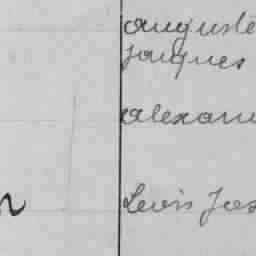 auguste
Jacques
alexan
Levis Jos